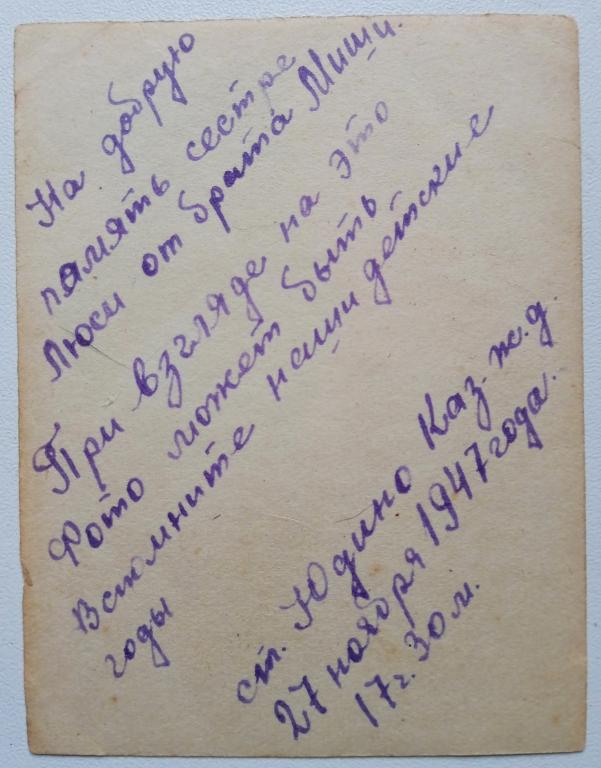 На добрую
память сестре
Люси от брата Миши.
При взгляде на это
Фото может быть
Вспомните наши детские
годы
ст. Юдино Каз. ж.д.
27 ноября 1947 года.
17 г. 30 м.